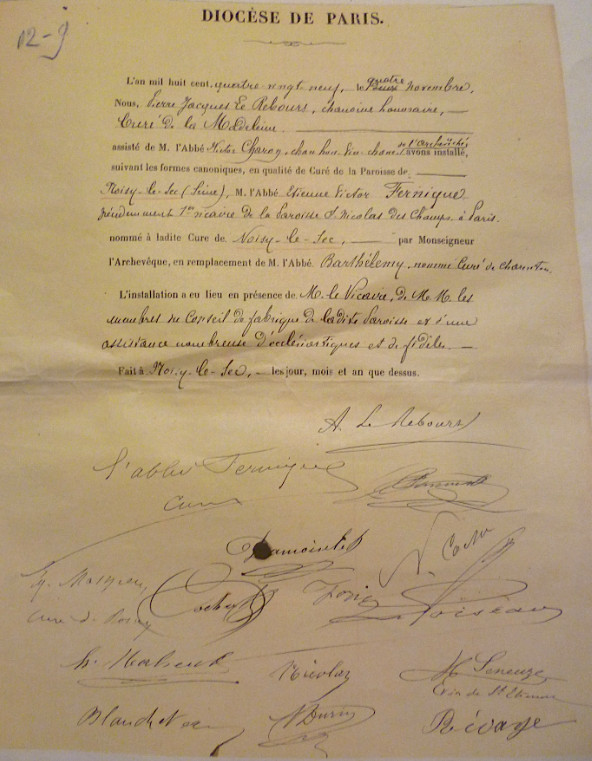 12-9
DIOCÈSE DE PARIS.
L'an mil huit cent quatre vingt neuf, le quatre novembre,
Nous, Pierre Jacques Le Rebours, chanoine honoraire,
Curé de la Madeleine
assisté de M. l'Abbé Victor chan. hon. de l'archevêché avons installé,
suivant les formes canoniques, en qualité de Curé de la Paroisse de
Noisy-le-Sec (Seine), M. l'Abbé Etienne Victor Fernique
précédemment 1er vicaire de la Paroisse St Nicolas des Champs à Paris
nommé à ladite Cure de Noisy-le-Sec, par Monseigneur
l'Archevêque, en remplacement de M. l'Abbé Barthélemy, nommé Curé de Charenton.
L'installation a eu lieu en présence de M. le Vicaire, de M.M. les
membres du Conseil de fabrique de ladite Paroisse et d'une
assistance nombreuse d'ecclésiastiques et de fidèles.
Fait à Noisy-le-Sec, les jour, mois et an que dessus.
A. Le Rebours
l'abbé Fernique
curé
Damoiselet
Cochu
Loiseau
curé de
Nicolas
Blancheteau